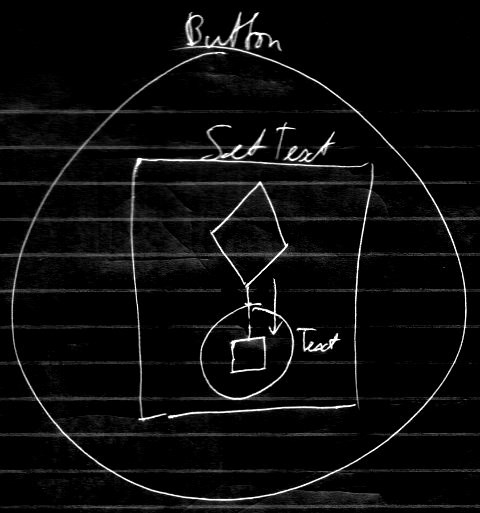 Button
Set Text
Text